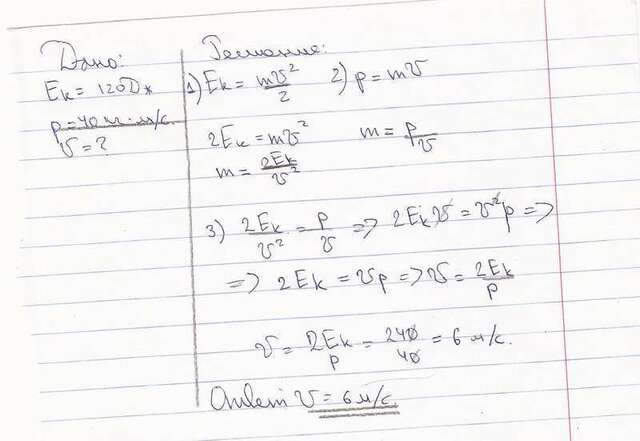 Дано:
Eк = 120Дж
p = 40 кг·м/с
υ = ?
Решение:
1) Eк = mυ²/2  2) p = mυ
2Eк = mυ²  m = p/υ
m = 2Eк/υ²
3) 2Eк/υ² = p/υ => 2Eкυ = υ²p =>
=> 2Eк = υp => υ = 2Eк/p
υ = 2Eк/p = 240/40 = 6 м/с.
Ответ υ = 6 м/с.